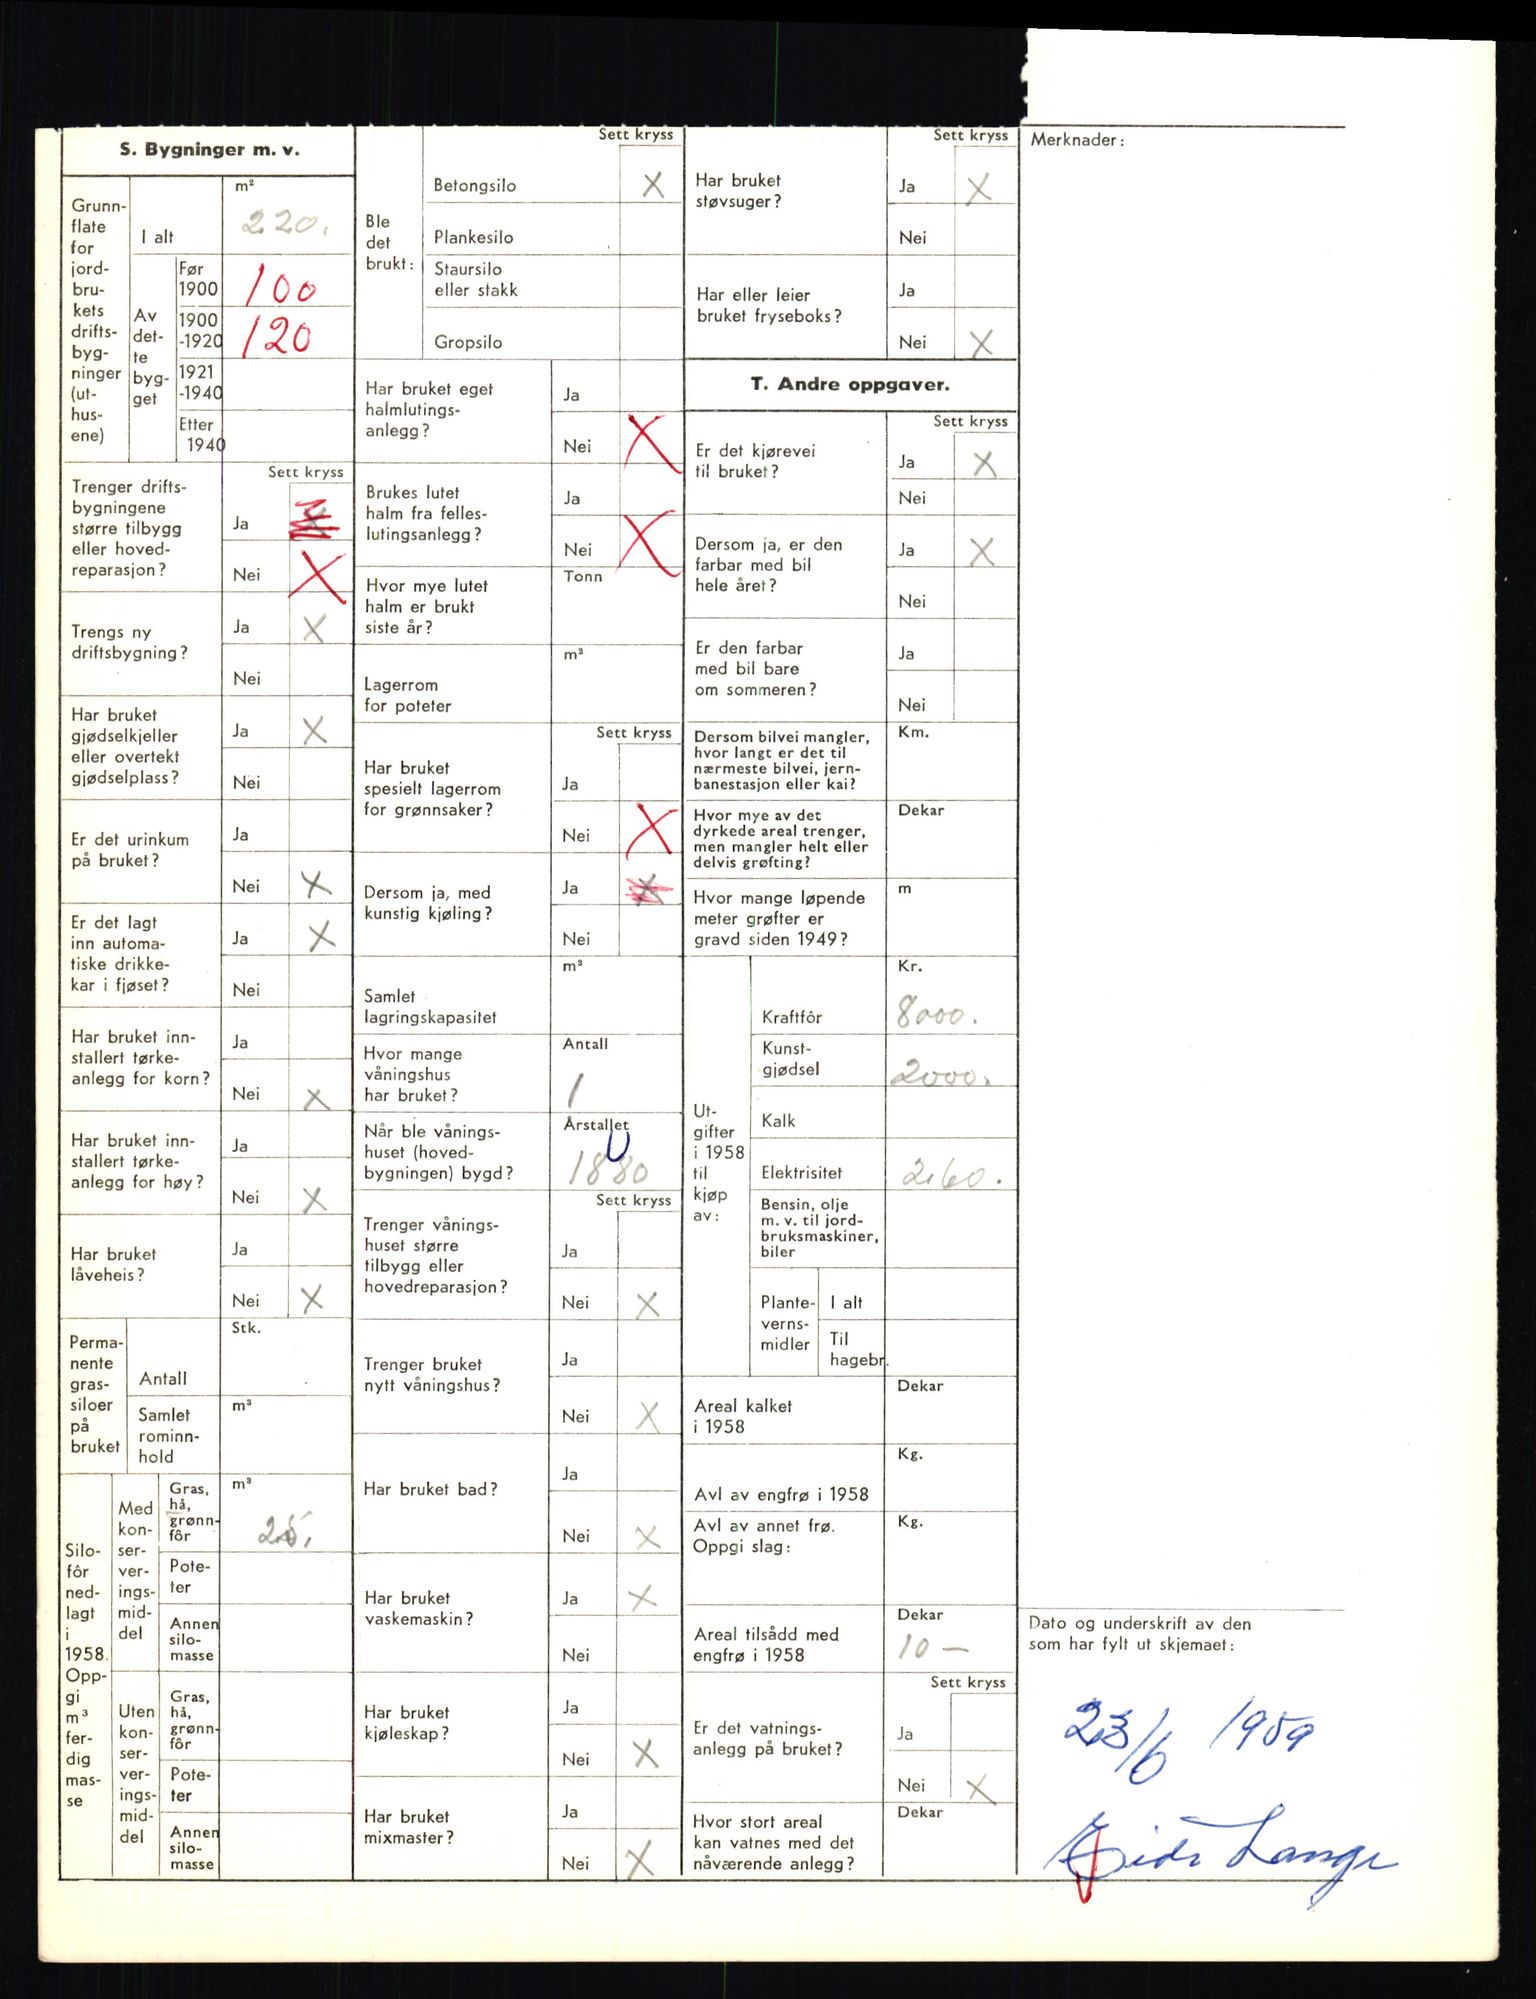 S. Bygninger m. v.
Grunn-
flate
for
jord-
bru-
kets
drifts-
byg-
ninger
(ut-
hus-
ene)
I alt
m²
220.
Av
det-
te
byg-
get
Før
1900
100
1900
-1920
120
1921
-1940
Etter
1940
Sett kryss
Trenger drifts-
bygningene
større tilbygg
eller hoved-
reparasjon?
Ja X
Nei X
Trengs ny
driftsbygning?
Ja X
Nei
Har bruket
gjødselkjeller
eller overtekt
gjødselplass?
Ja X
Nei
Er det urinkum
på bruket?
Ja
Nei X
Er det lagt
inn automa-
tiske drikke-
kar i fjøset?
Ja X
Nei
Har bruket inn-
stallert tørke-
anlegg for korn?
Ja
Nei X
Har bruket inn-
stallert tørke-
anlegg for høy?
Ja
Nei X
Har bruket
låveheis?
Ja
Nei X
Perma-
nente
gras-
siloer
på
bruket
Antall
Stk.
Samlet
rominn-
hold
m³
Silo-
fôr
ned-
lagt
i
1958.
Opp-
gi
m³
fer-
dig
mas-
se
Med
kon-
ser-
ver-
ings-
mid-
del
Gras,
hå,
grønn-
fôr
m³
25.
Pote-
ter
Annen
silo-
masse
Uten
kon-
ser-
ver-
ings-
mid-
del
Gras,
hå,
grønn-
fôr
Pote-
ter
Annen
silo-
masse
Ble
det
brukt:
Sett kryss
Betongsilo X
Plankesilo
Staursilo
eller stakk
Gropsilo
Har bruket eget
halmlutings-
anlegg?
Ja
Nei X
Brukes lutet
halm fra felles-
lutingsanlegg?
Ja
Nei X
Hvor mye lutet
halm er brukt
siste år?
Tonn
Lagerrom
for poteter
m²
Sett kryss
Har bruket
spesielt lagerrom
for grønnsaker?
Ja
Nei X
Dersom ja, med
kunstig kjøling?
Ja X
Nei
Samlet
lagringskapasitet
m³
Hvor mange
våningshus
har bruket?
Antall
1
Når ble vånings-
huset (hoved-
bygningen) bygd?
Årstallet
1880
Sett kryss
Trenger vånings-
huset større
tilbygg eller
hovedreparasjon?
Ja
Nei X
Trenger bruket
nytt våningshus?
Ja
Nei X
Har bruket bad?
Ja
Nei X
Har bruket
vaskemaskin?
Ja X
Nei
Har bruket
kjøleskap?
Ja
Nei X
Har bruket
mixmaster?
Ja
Nei X
Sett kryss
Har bruket
støvsuger?
Ja X
Nei
Har eller leier
bruket fryseboks?
Ja
Nei X
T. Andre oppgaver.
Sett kryss
Er det kjørevei
til bruket?
Ja X
Nei
Dersom ja, er den
farbar med bil
hele året?
Ja X
Nei
Er den farbar
med bil bare
om sommeren?
Ja
Nei
Dersom bilvei mangler,
hvor langt er det til
nærmeste bilvei, jern-
banestasjon eller kai?
Km.
Hvor mye av det
dyrkede areal trenger,
men mangler helt eller
delvis grøfting?
Dekar
Hvor mange løpende
meter grøfter er
gravd siden 1949?
m
Ut-
gifter
i 1958
til
kjøp
av:
Kr.
Kraftfôr
8000.
Kunst-
gjødsel
2000.
Kalk
Elektrisitet
260.
Bensin, olje
m. v. til jord-
bruksmaskiner,
biler
Plante-
verns-
midler
I alt
Til
hagebr.
Areal kalket
i 1958
Dekar
Avl av engfrø i 1958
Kg.
Avl av annet frø.
Oppgi slag:
Kg.
Areal tilsådd med
engfrø i 1958
Dekar
10 —
Sett kryss
Er det vatnings-
anlegg på bruket?
Ja
Nei X
Hvor stort areal
kan vatnes med det
nåværende anlegg?
Dekar
Merknader:
Dato og underskrift av den
som har fylt ut skjemaet:
23/6 1959
Lange